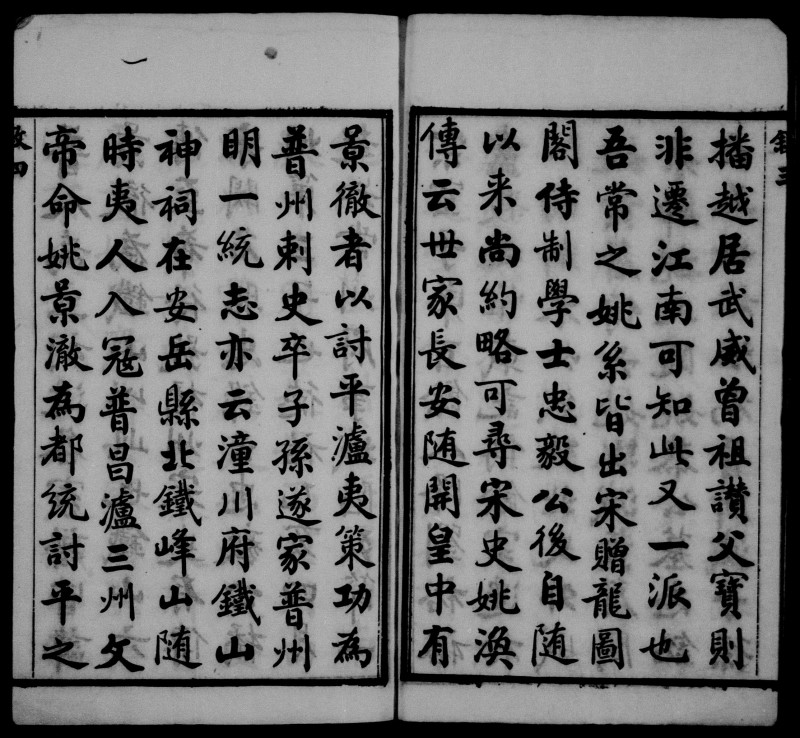 播越居武威曾祖讃父寳則
非遷江南可知此又一派也
吾常之姚系皆出宋贈龍圖
閣侍制學士忠毅公後自随
以来尚約略可尋宋史姚渙
傳云世家長安随開皇中有
景徹者以討平瀘夷策功為
普州刺史卒子孫遂家普州
明一統志亦云潼川府鐵山
神祠在安岳縣北鐵峰山随
時夷人入寇普昌瀘三州文
帝命姚景澈為都統討平之